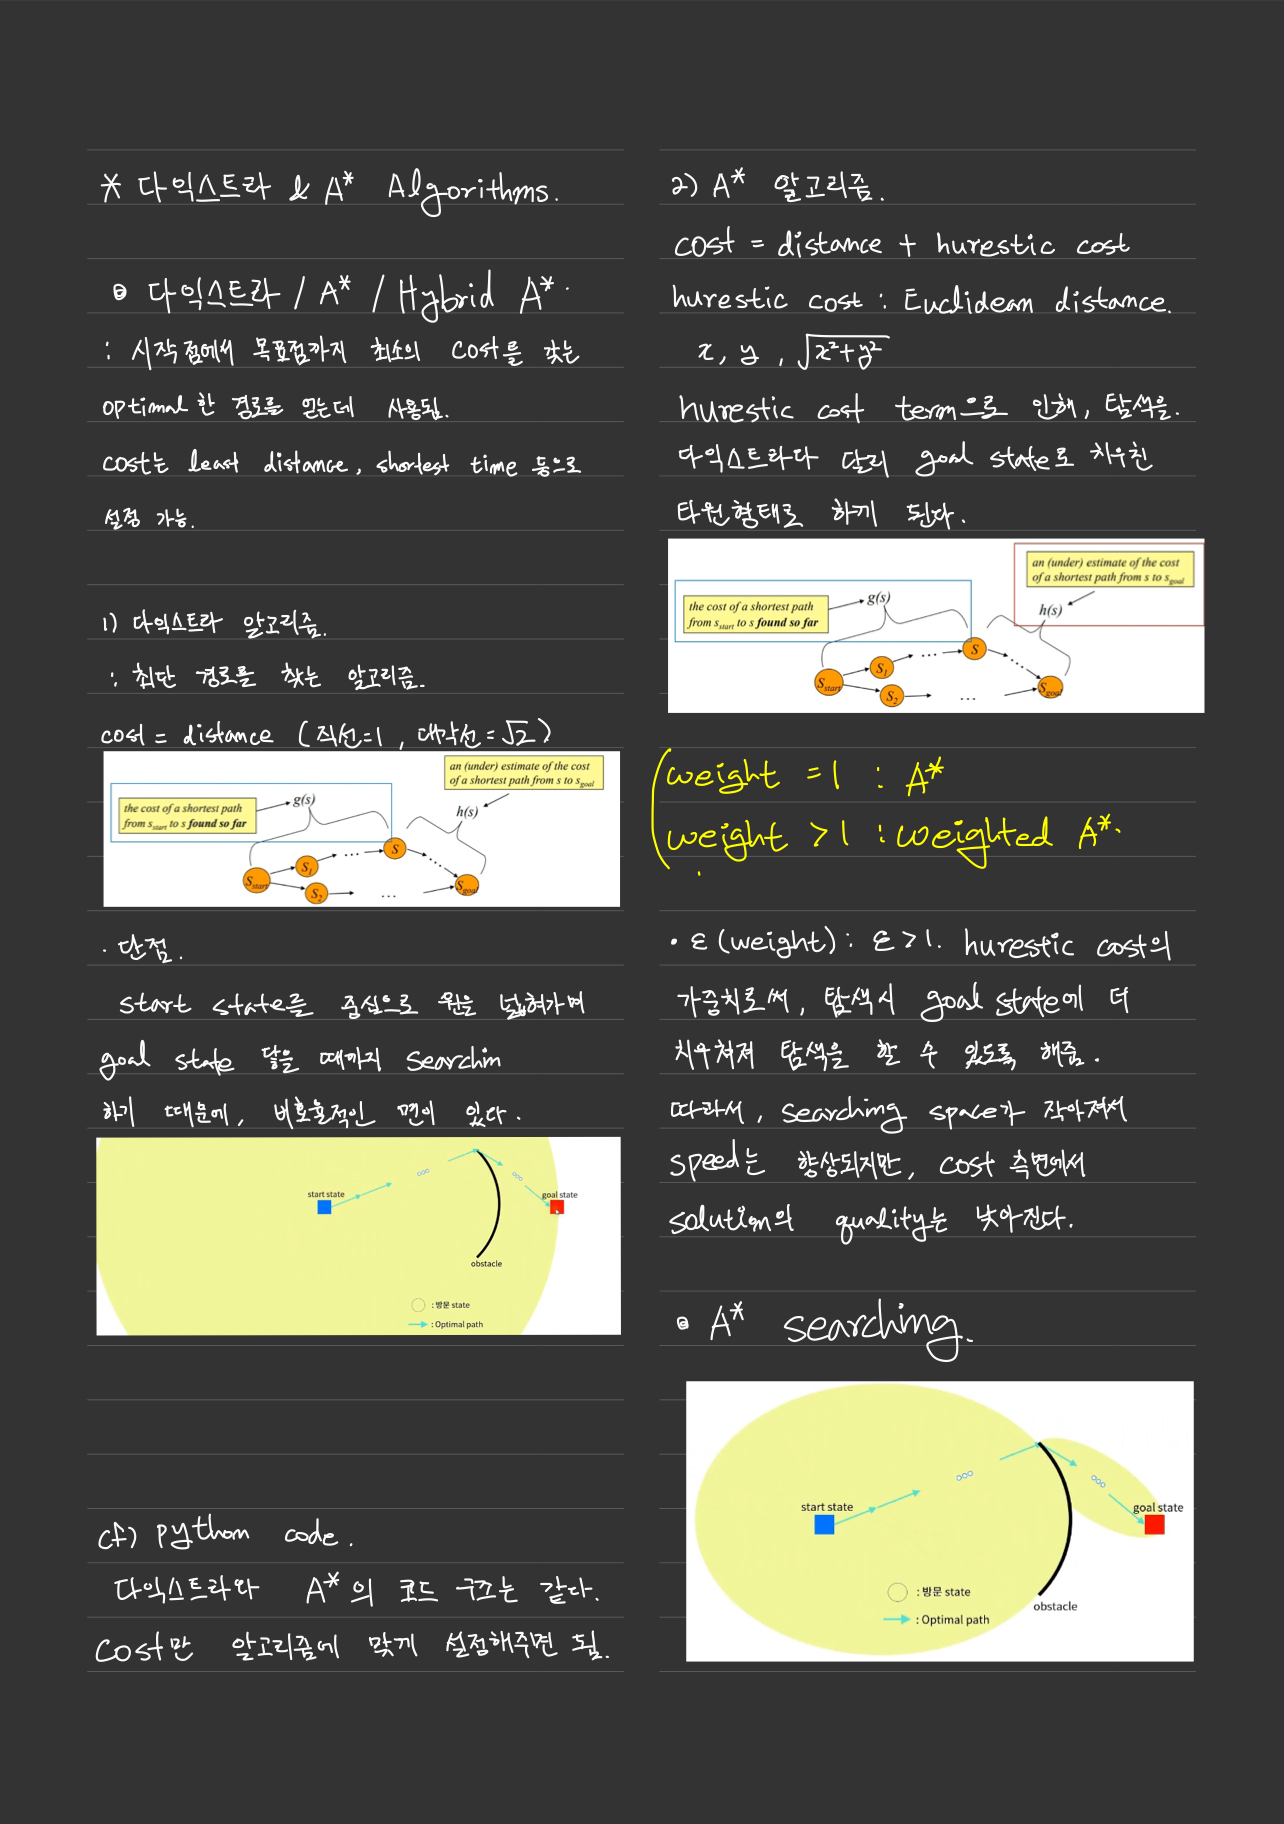 * 다익스트라 & A* Algorithms.
다익스트라 / A* / Hybrid A*.
: 시작점에서 목표점까지 최소의 cost를 갖는
optimal 한 경로를 얻는데 사용됨.
cost는 least distance, shortest time 등으로
설정 가능.
1) 다익스트라 알고리즘.
: 최단 경로를 찾는 알고리즘.
cost = distance (직선=1, 대각선=√2)
an (under) estimate of the cost
of a shortest path from s to s_goal
the cost of a shortest path
from s_start to s found so far
g(s)
h(s)
S
S_1
...
S_start
S_2
...
S_goal
· 단점.
start state를 중심으로 원을 넓혀가며
goal state 닿을 때까지 searchin
하기 때문에, 비효율적인 면이 있다.
start state
goal state
obstacle
: 방문 state
: Optimal path
cf) python code.
다익스트라와 A*의 코드 구조는 같다.
Cost만 알고리즘에 맞게 설정해주면 됨.
2) A* 알고리즘.
cost = distance + hurestic cost
hurestic cost : Euclidean distance.
x, y, √x²+y²
hurestic cost term으로 인해, 탐색을.
다익스트라다 달리 goal state로 치우친
타원형태로 하게 된다.
an (under) estimate of the cost
of a shortest path from s to s_goal
the cost of a shortest path
from s_start to s found so far
g(s)
h(s)
S
S_1
...
S_start
S_2
...
S_goal
weight = 1 : A*
weight > 1 : weighted A*.
• ε (weight) : ε > 1. hurestic cost의
가중치로써, 탐색시 goal state에 더
치우쳐져 탐색을 할 수 있도록 해줌.
따라서, searching space가 작아져서
speed는 향상되지만, cost 측면에서
solution의 quality는 낮아진다.
A* searching.
start state
goal state
: 방문 state
obstacle
: Optimal path